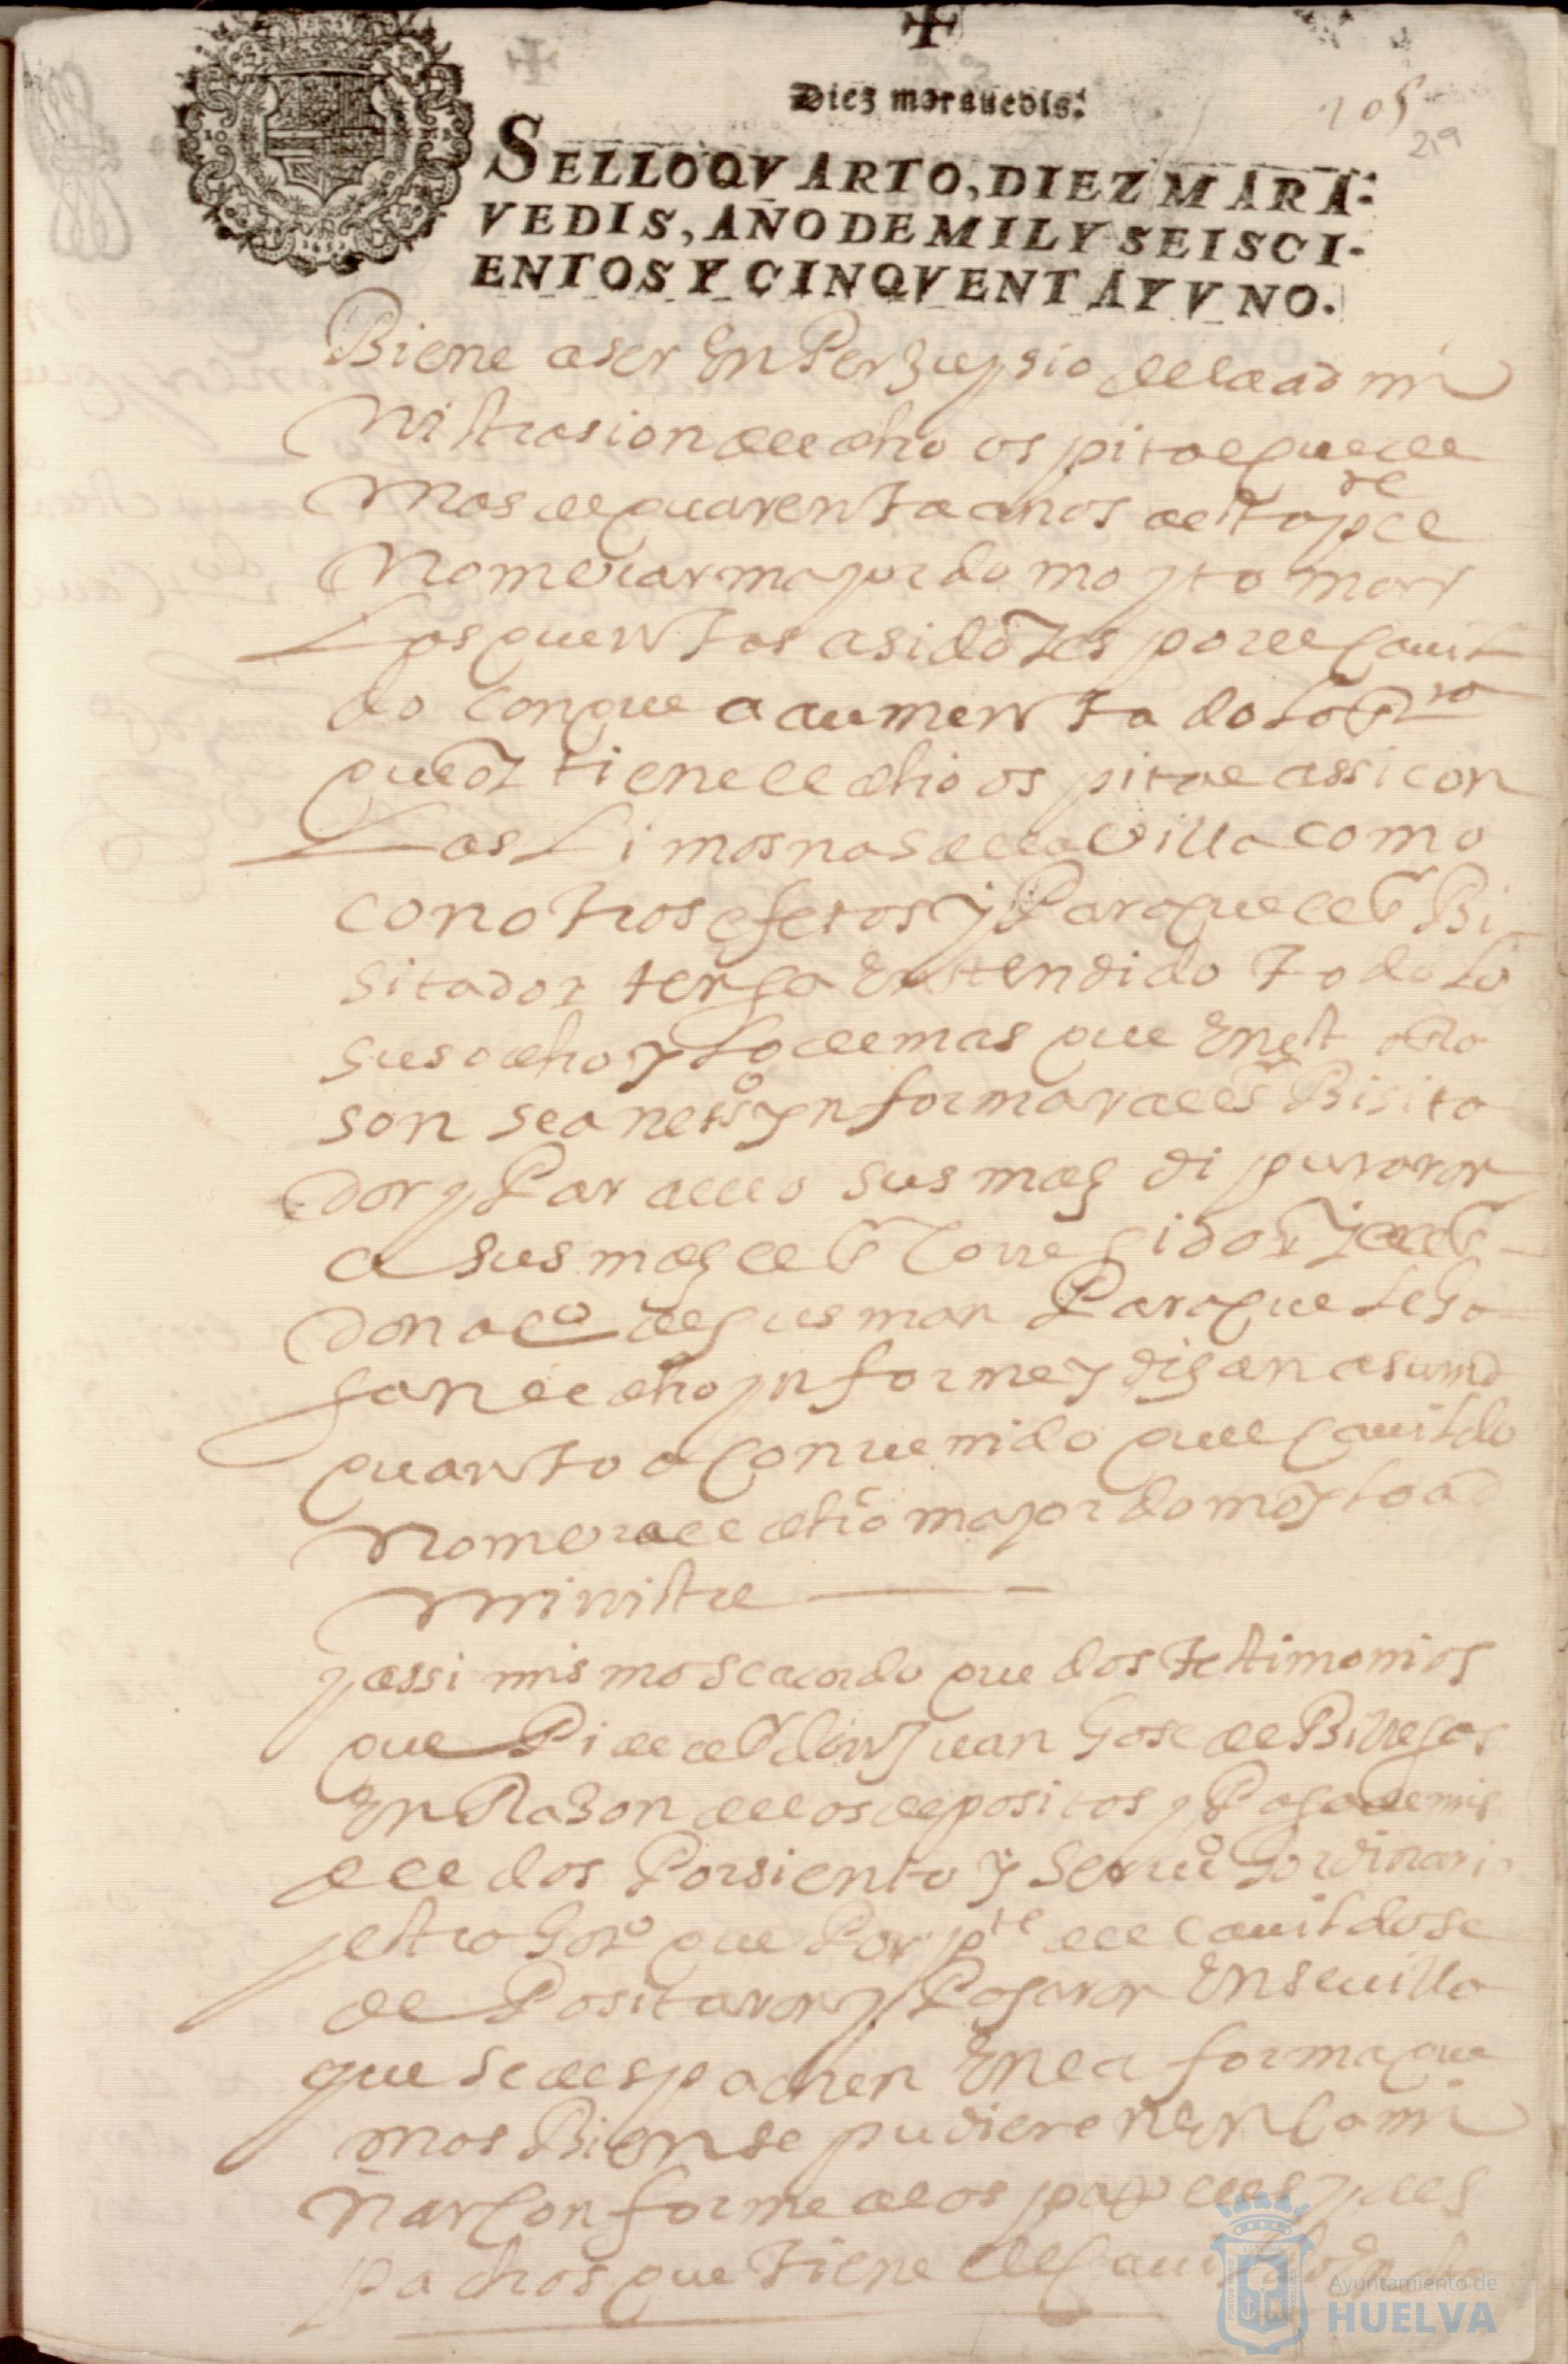 Diez marauedis.
105
219
SELLO QVARTO, DIEZ MARA-
VEDIS, AÑO DE MIL Y SEISCI-
ENTOS Y CINQVENTA Y VNO.
Biene a ser en perJuysio de la admi
nistrasion del dho ospital que de
mas de quarenta años a esta pte el
nombrar mayordomo y tomar
las quentas a sido es por el cauil
do con que a aumentado lo
que oy tiene el dho ospital assi con
las limosnas de la villa como
con otros efetos y Para que el sr Bi
sitador tenga entendido todo lo
suso dho y lo demas que en esta
son sea neso ynformar al sr Bisita
dor y Par a ello sus mds diputaron
a sus mds el sr Corregidor y al sr
don alo de gusman Para que le ha
gan el dho ynforme y digan a su md
quanto a conuenido que cauildo
nombra el dho mayordomo y lo ad
ministre
y assi mismo se acordo que dos testimonios
que Pide el sr don Juan Gose de Billegas
en Rason de los depositos y Paga de mis
del dos Por siento y seruio hordinario
y estrahoro que Por pte del cauildo se
depositaron y Pagaron en seuilla
que se despachen en la forma que
mas Bien se pudieren encami
nar Conforme a los papeles y des
pachos que tiene el Cauildo
Ayuntamiento de
HUELVA